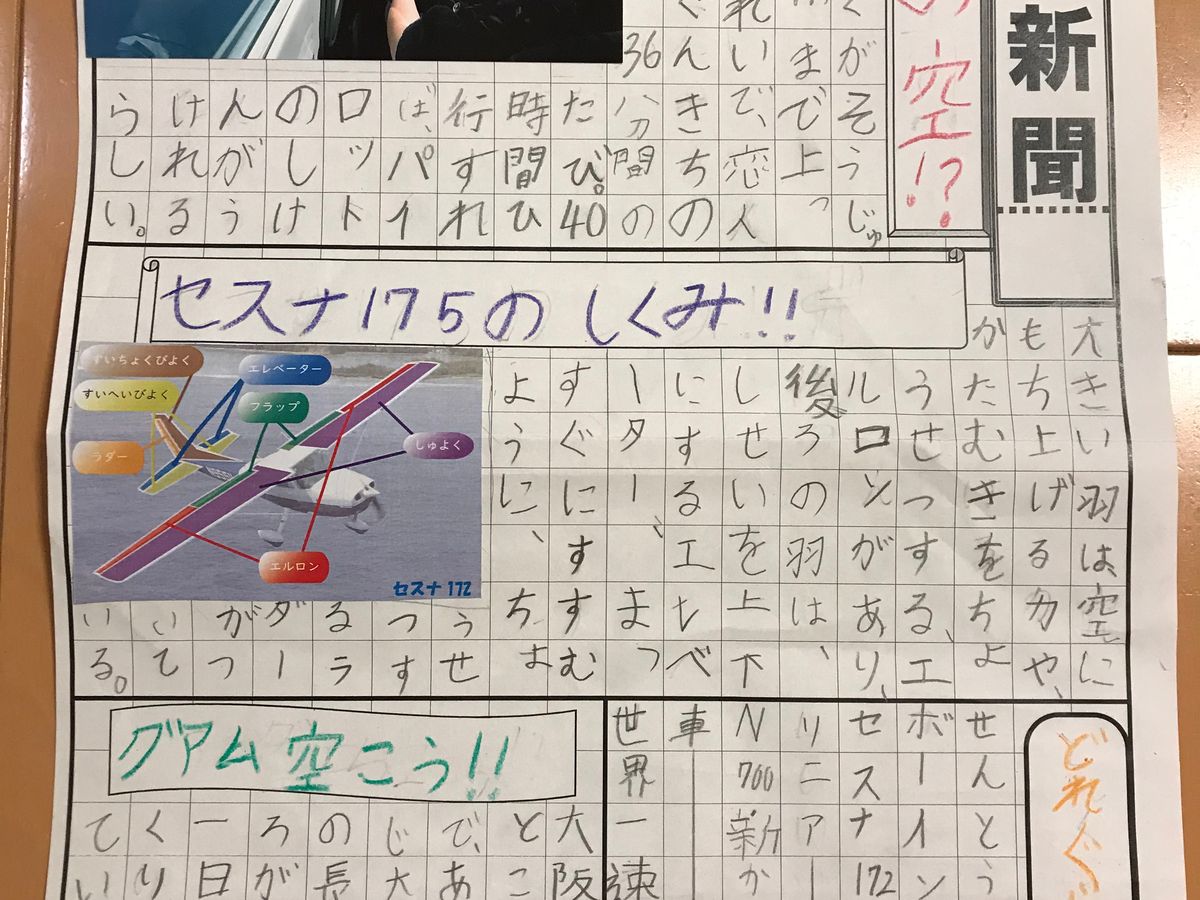 新聞
の空!?
くがそうじゅ
まで上っ
れいで、恋人
ぐんきちの
36分間の
たび。40
時間ひ
行すれ
ば、パイ
ロット
のしけ
んがう
けれる
らしい。
セスナ175のしくみ!!
大きい羽は、空に
もち上げる力や、
かたむきをちょ
うせっする、エ
ルロンがあり、
後ろの羽は、
しせいを上下
にするエレベ
ーター、まっ
すぐにすすむ
ように、ちょ
うせ
っす
るラ
ダー
がつ
いて
いる。
すいちょくびよく
すいへいびよく
ラダー
エレベーター
フラップ
しゅよく
エルロン
セスナ172
どれぐ
せんとう
ボーイン
セスナ172
リニアー
N700新か
車
世界一速
グアム空こう!!
大阪
とこ
で、あ
じ大
の長
ろが
一日
くり
てい